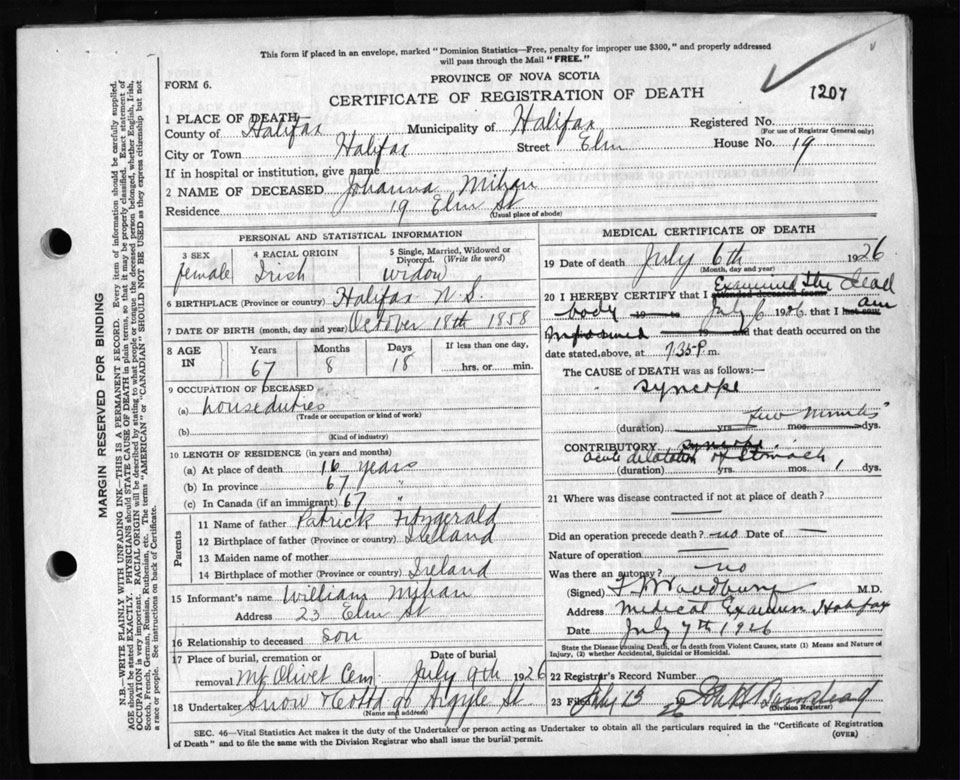 This form if placed in an envelope, marked "Dominion Statistics—Free, penalty for improper use $300," and properly addressed
will pass through the Mail "FREE."
PROVINCE OF NOVA SCOTIA
FORM 6.
CERTIFICATE OF REGISTRATION OF DEATH
1207
1 PLACE OF DEATH
County of Halifax Municipality of Halifax Registered No.
(For use of Registrar General only)
City or Town Halifax Street Elm House No. 19
If in hospital or institution, give name
2 NAME OF DECEASED Johanna Mihan
Residence 19 Elm St
(Usual place of abode)
PERSONAL AND STATISTICAL INFORMATION
3 SEX 4 RACIAL ORIGIN 5 Single, Married, Widowed or Divorced. (Write the word)
female Irish widow
6 BIRTHPLACE (Province or country) Halifax N.S.
7 DATE OF BIRTH (month, day and year) October 18th 1858
8 AGE IN Years Months Days If less than one day,
67 8 18 hrs. or min.
9 OCCUPATION OF DECEASED
(a) house duties
(Trade or occupation or kind of work)
(b)
(Kind of industry)
10 LENGTH OF RESIDENCE (in years and months)
(a) At place of death 16 years
(b) In province 67 "
(c) In Canada (if an immigrant) 67 "
Parents
11 Name of father Patrick Fitzgerald
12 Birthplace of father (Province or country) Ireland
13 Maiden name of mother
14 Birthplace of mother (Province or country) Ireland
15 Informant's name William Mihan
Address 23 Elm St
16 Relationship to deceased Son
17 Place of burial, cremation or removal Mt Olivet Cem Date of burial July 9th 1926
18 Undertaker Snow & Co Ltd 90 Argyle St
(Name and address)
MEDICAL CERTIFICATE OF DEATH
19 Date of death July 6th 1926
(Month, day and year)
20 I HEREBY CERTIFY that I attended deceased from Examined the dead
body 19 19 July 6 1926 that I last saw am
informed 19 and that death occurred on the
date stated above, at 7.35 P. m.
The CAUSE of DEATH was as follows:—
Syncope
(duration) yrs mos. dys. few minutes
CONTRIBUTORY syncope
acute dilatation of stomach
(duration) yrs. mos. 1 dys.
21 Where was disease contracted if not at place of death?
Did an operation precede death? no Date of
Nature of operation
Was there an autopsy? no
(Signed) M.D.
Address Medical Examiner Halifax
Date July 7th 1926
State the Disease causing Death, or in death from Violent Causes, state (1) Means and Nature of
Injury, (2) whether Accidental, Suicidal or Homicidal.
22 Registrar's Record Number
23 Filed July 13 26
(Division Registrar)
SEC. 46—Vital Statistics Act makes it the duty of the Undertaker or person acting as Undertaker to obtain all the particulars required in the "Certificate of Registration
of Death" and to file the same with the Division Registrar who shall issue the burial permit.
(OVER)
MARGIN RESERVED FOR BINDING
N.B.—WRITE PLAINLY WITH UNFADING INK—THIS IS A PERMANENT RECORD. Every item of information should be carefully supplied.
AGE should be stated EXACTLY. PHYSICIANS should STATE CAUSE OF DEATH in plain terms, so that it may be properly classified. Exact statement of
OCCUPATION is very important. RACIAL ORIGIN will be described by stating to what people or tongue the deceased person belonged, whether English, Irish,
Scotch, French, German, Russian, Ruthenian, etc. The terms "AMERICAN" or "CANADIAN" SHOULD NOT BE USED as they express citizenship but not
a race or people. See instructions on back of Certificate.